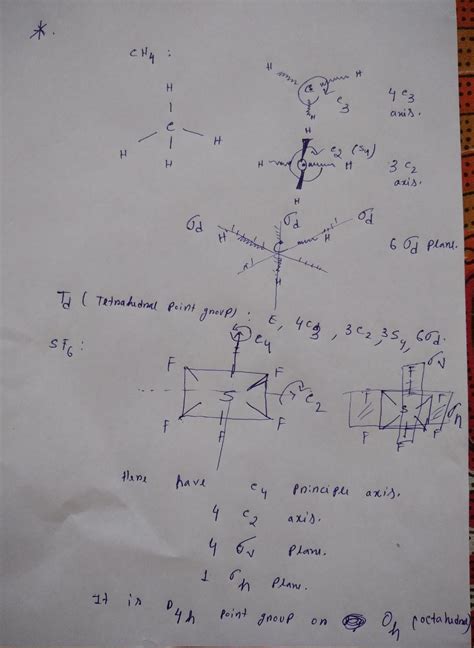 *.
CH4 :
H
C
H H
H
H H
C
H
C3
4 C3
axis.
H
C2 (S4)
H H
H
3 C2
axis.
σd σd σd
H H
C
H
6 σd plane.
Td ( Tetrahedral point group) : E, 4C3, 3C2, 3S4, 6σd.
SF6 :
C4
F F
S
C2
F F
F
σv
F
S
σh
F F
F
Here have C4 principle axis.
4 C2 axis.
4 σv plane.
1 σh plane.
It is D4h point group or Oh (octahedral)